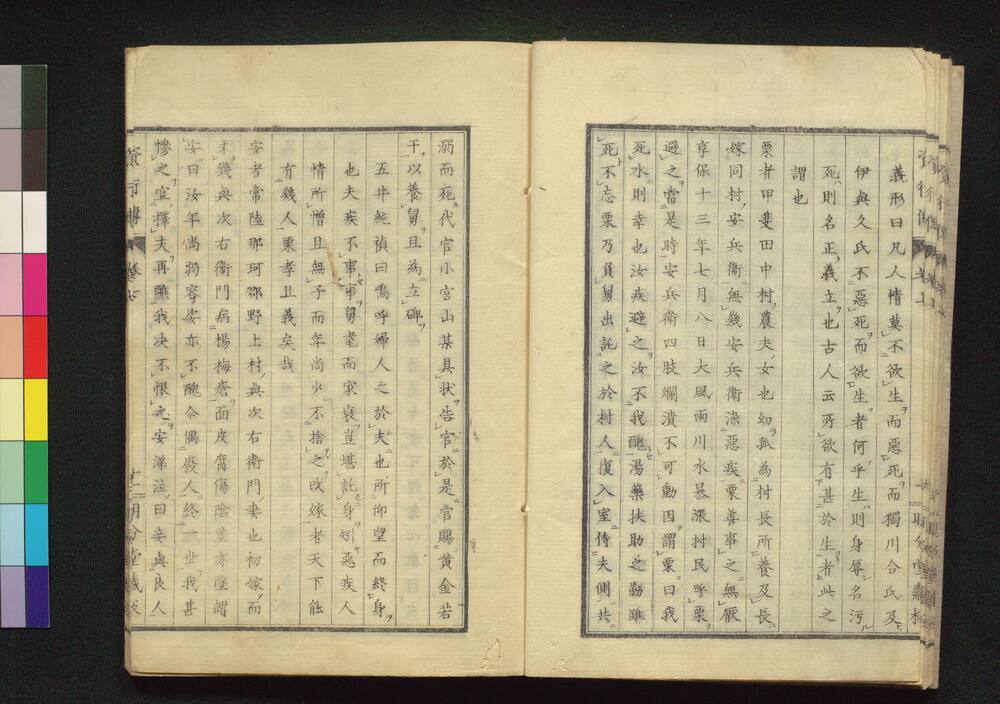 義形曰凡人情莫不欲生而惡死而獨川合氏及
伊與久氏不惡死而欲生者何乎生則身辱名污
死則名正義立也古人云所欲有甚於生者此之
謂也
栗者甲斐田中村農夫女也幼孤為村長所養及長
嫁同村安兵衛無幾安兵衛染惡疾栗善事之無厭
享保十三年七月八日大風雨川水暴漲村民呼栗
避之當是時安兵衛四肢爛潰不可動因謂栗曰我
死水則幸也汝疾避之汝不我醜湯藥扶助之勤雖
死不忘栗乃負舅出託之於村人復入室侍夫側共
溺而死代官小宮山某具狀告官於是官賜黃金若
干以養舅且為立碑
五井純禎曰嗚呼婦人之於夫也所仰望而終身
也夫疾不事事舅耄而家衰豈堪託身矧惡疾人
情所憎且無子而年尚少不捨之改嫁者天下能
有幾人栗孝且義矣哉
安者常陸那珂郡野上村與次右衛門妻也初嫁而
未幾與次右衛門病楊梅瘡面皮腐傷陰莖亦墜謂
安曰汝年尚弱容姿亦不醜今偶廢人終一世我甚
慘之宜擇夫再醮我决不恨之安涕泣曰妾與良人